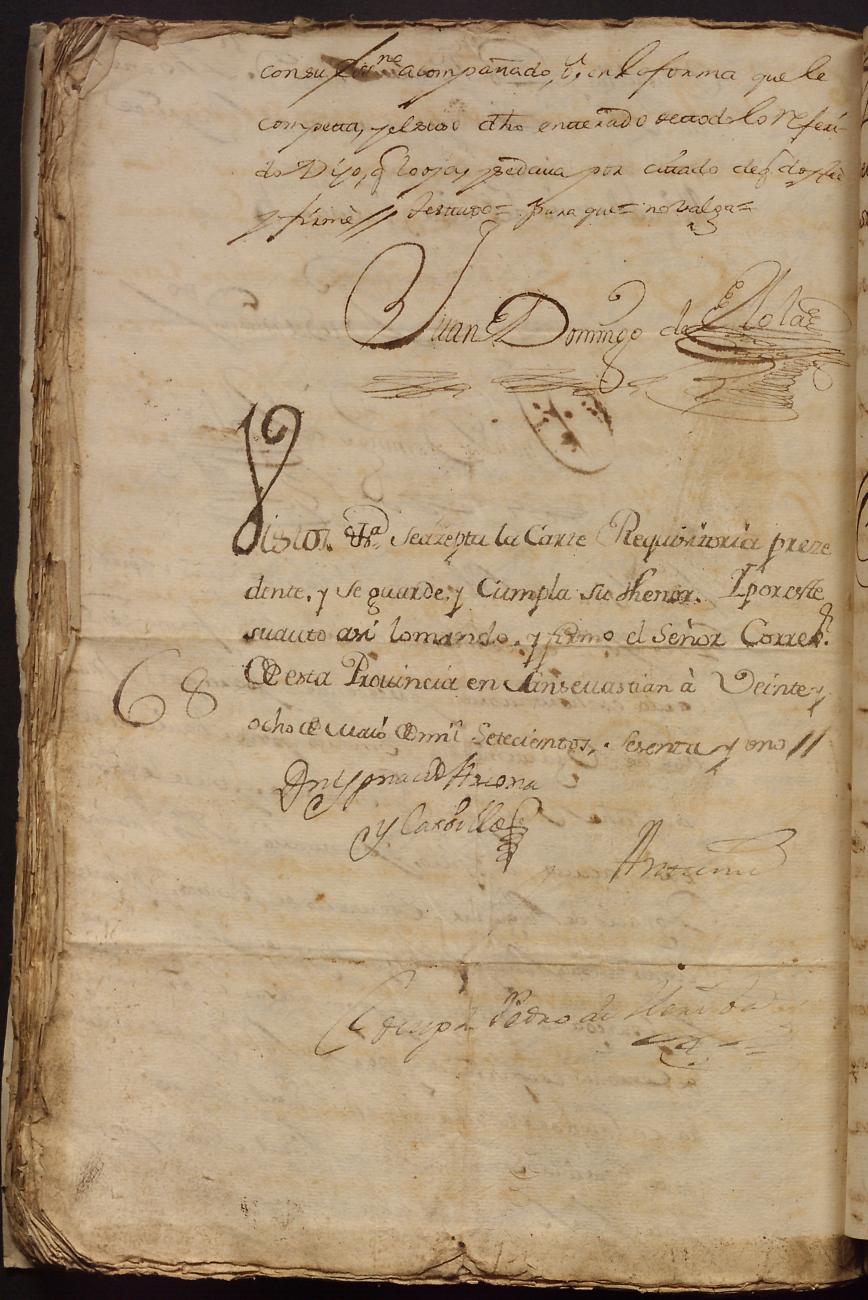 con su acompañado, ô, en la forma que le
competa, y el suso dho enterado de todo lo referi-
do Dijo, q lo oja, y se dava por citado de q doy fee
y firmè // testado= para que= no valga=
Juan Domingo de
Vistos. Se azepta la Carte Requisitoria preze
dente, y se guarde, y Cumpla su thenor. I por este
su auto asi lo mando, y firmo el Señor Correxr.
De esta Provincia en San sevastian à Veinte y
68
ocho de Maio de mil Setecientos, Sesenta y uno //
Dn Ygnacio Azcona
y Carrillo
Ante mi
Joseph Pedro de